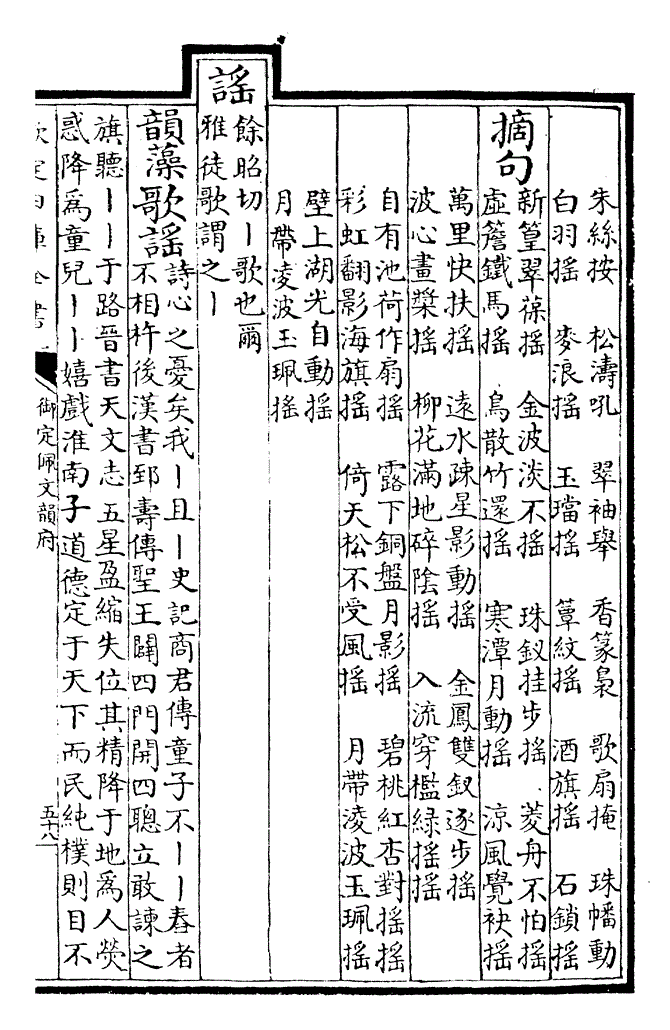 朱絲按　松濤吼　翠袖舉　香篆裊　歌扇掩　珠幡動
白羽搖　麥浪搖　玉璫搖　簟紋搖　酒旗搖　石鎖搖
摘句
新篁翠葆搖　金波淡不搖　珠釵挂步搖　菱舟不怕搖
虛簷鐵馬搖　鳥散竹還搖　寒潭月動搖　涼風覺袂搖
萬里快扶搖　遠水疎星影動搖　金鳳雙釵逐步搖
波心畫槳搖　柳花滿地碎陰搖　入流穿檻綠搖搖
自有池荷作扇搖　露下銅盤月影搖　碧桃紅杏對搖搖
彩虹翻影海旗搖　倚天松不受風搖　月帶淩波玉珮搖
壁上湖光自動搖
月帶淩波玉珮搖
謠
餘昭切丨歌也爾
雅徒歌謂之丨
韻藻歌謠
詩心之憂矣我丨且丨史記商君傳童子不丨丨舂者
不相杵後漢書郅壽傳聖王闢四門開四聰立敢諫之
旗聽丨丨于路晉書天文志五星盈縮失位其精降于地為人熒
惑降為童兒丨丨嬉戲淮南子道德定于天下而民純樸則目不
欽定四庫全書
御定佩文韻府
五十八